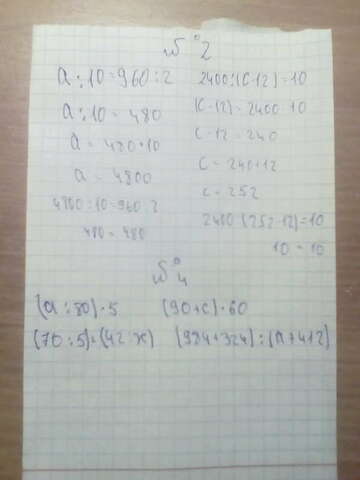 №2
a:10=960:2
a:10=480
a=480·10
a=4800
4800:10=960:2
480=480
2400:(c-12)=10
(c-12)=2400:10
c-12=240
c=240+12
c=252
2400:(252-12)=10
10=10
№4
(a:80)·5 (90+c)·60
(70:5)·(42:x) (924+324):(a+412)